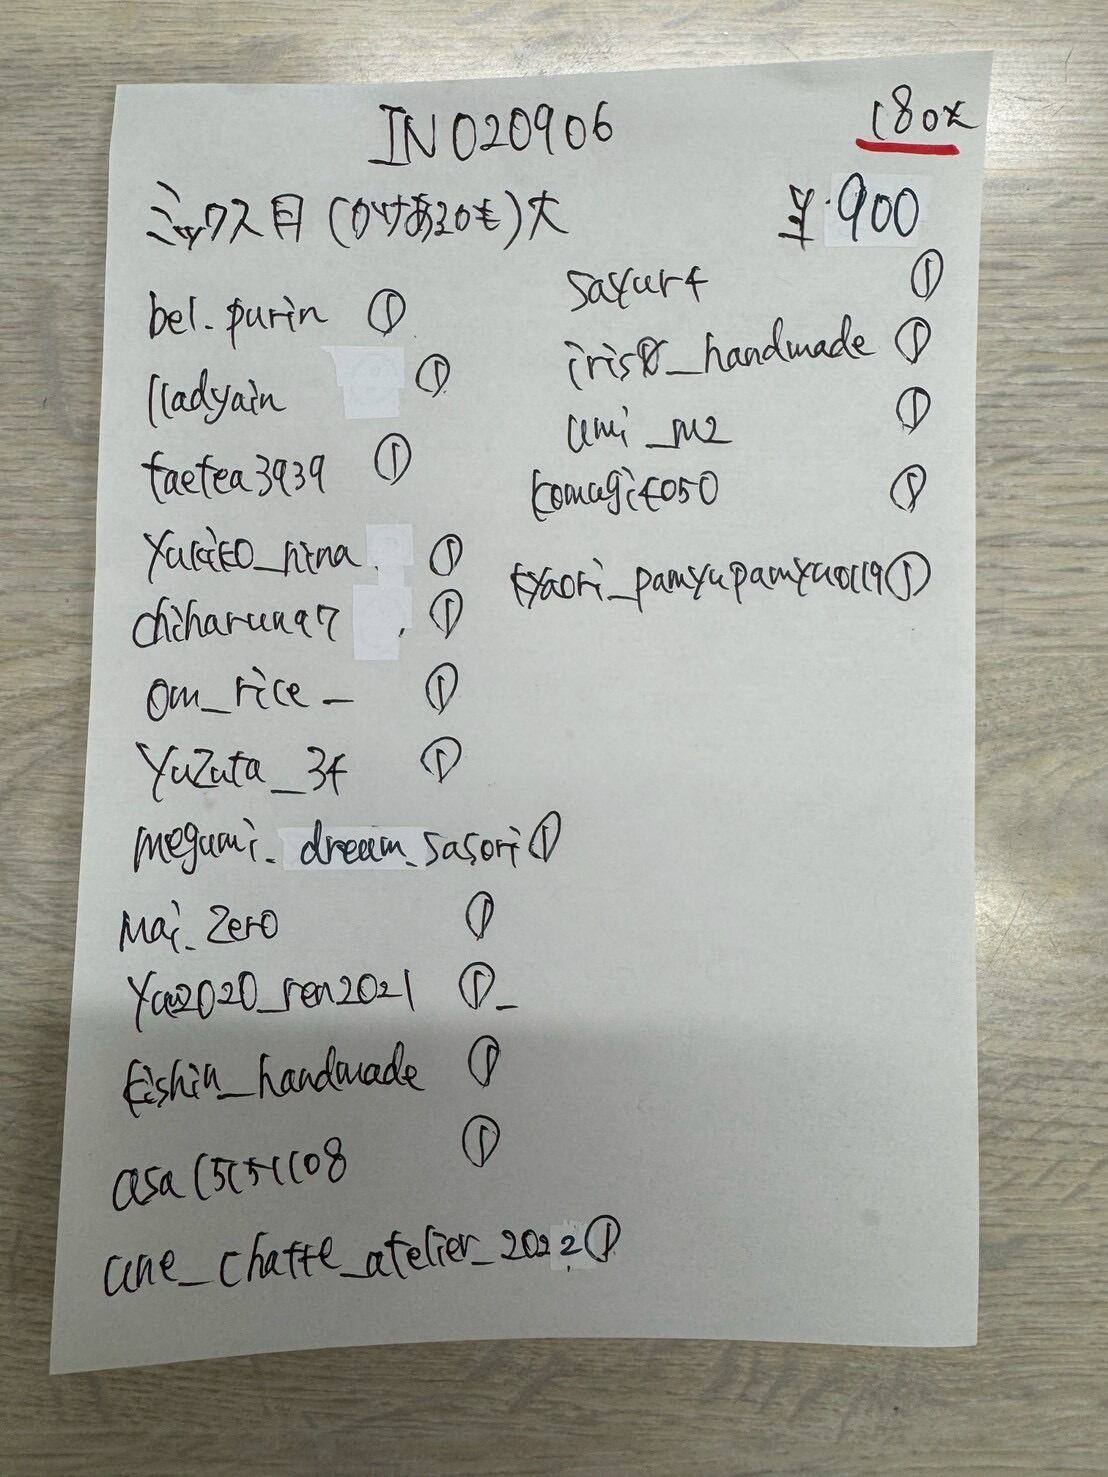 IN020906
180枚
ミックス目(かけあるかも)大
¥900
bel.purin ①
lladyain ①
taetea3939 ①
yukiko_nina ①
chiharuna7 ①
om_rice_ ①
yuzuta_34 ①
megumi.dream.sasori ①
mai.zero ①
yuu2020_ren2021 ①
kishin_handmade ①
asa15151108 ①
une_chatte_atelier_2022 ①
sayur4 ①
iris0_handmade ①
umi_m2 ①
komugi4050 ①
kyaori_pamyupamyu0119 ①